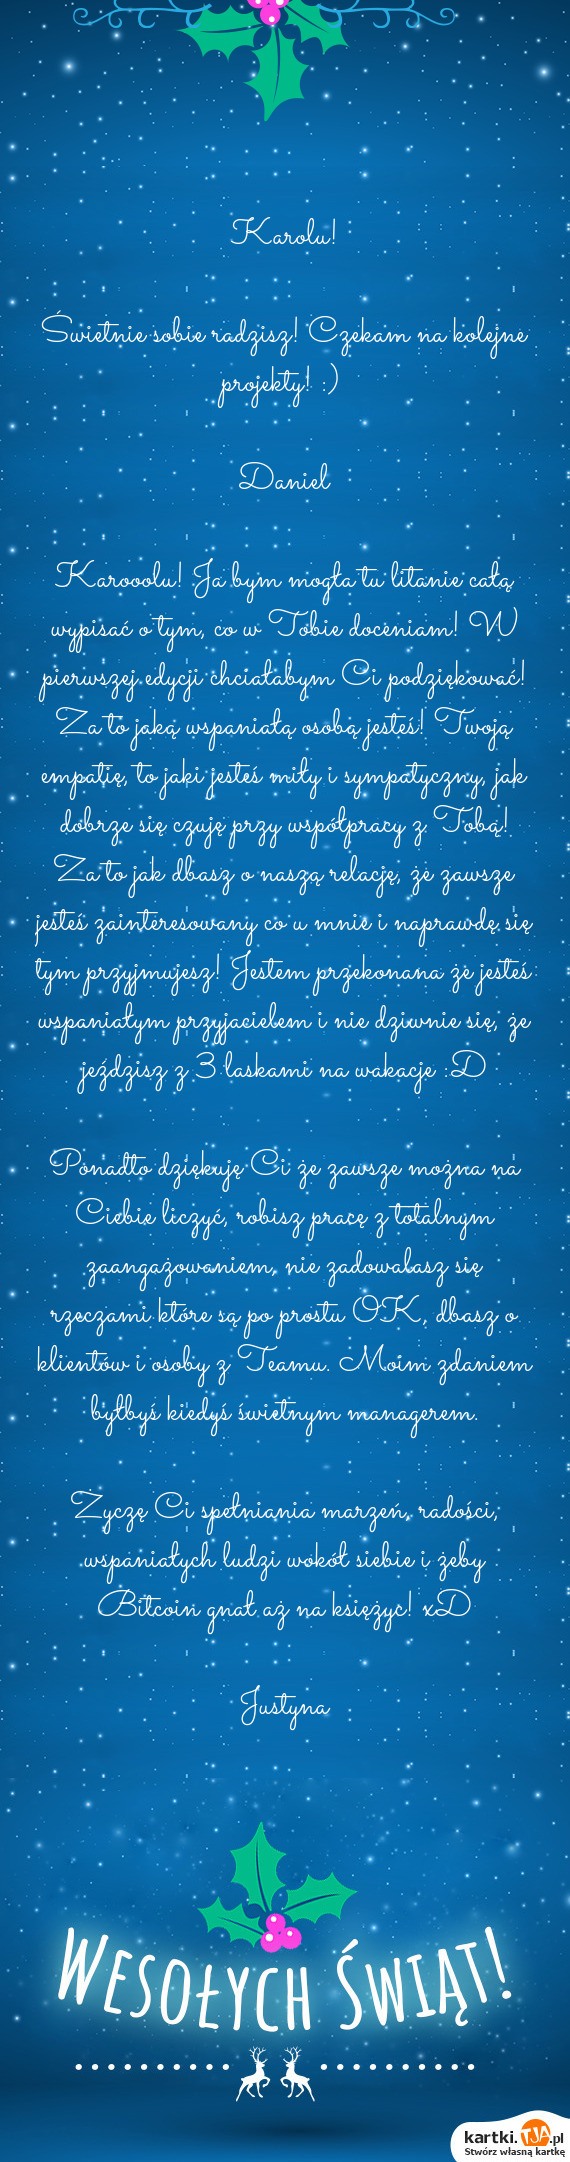 Karolu!
Świetnie sobie radzisz! Czekam na kolejne
projekty! :)
Daniel
Karooolu! Ja bym mogła tu litanie całą
wypisać o tym, co w Tobie doceniam! W
pierwszej edycji chciałabym Ci podziękować!
Za to jaką wspaniałą osobą jesteś! Twoją
empatię, to jaki jesteś miły i sympatyczny, jak
dobrze się czuję przy współpracy z Tobą!
Za to jak dbasz o naszą relację, że zawsze
jesteś zainteresowany co u mnie i naprawdę się
tym przyjmujesz! Jestem przekonana że jesteś
wspaniałym przyjacielem i nie dziwnie się, że
jeździsz z 3 laskami na wakacje :D
Ponadto dziękuję Ci że zawsze można na
Ciebie liczyć, robisz pracę z totalnym
zaangażowaniem, nie zadowalasz się
rzeczami które są po prostu OK, dbasz o
klientów i osoby z Teamu. Moim zdaniem
byłbyś kiedyś świetnym managerem.
Życzę Ci spełniania marzeń, radości,
wspaniałych ludzi wokół siebie i żeby
Bitcoin gnał aż na księżyc! xD
Justyna
WESOŁYCH ŚWIĄT!
kartki.TJA.pl
Stwórz własną kartkę